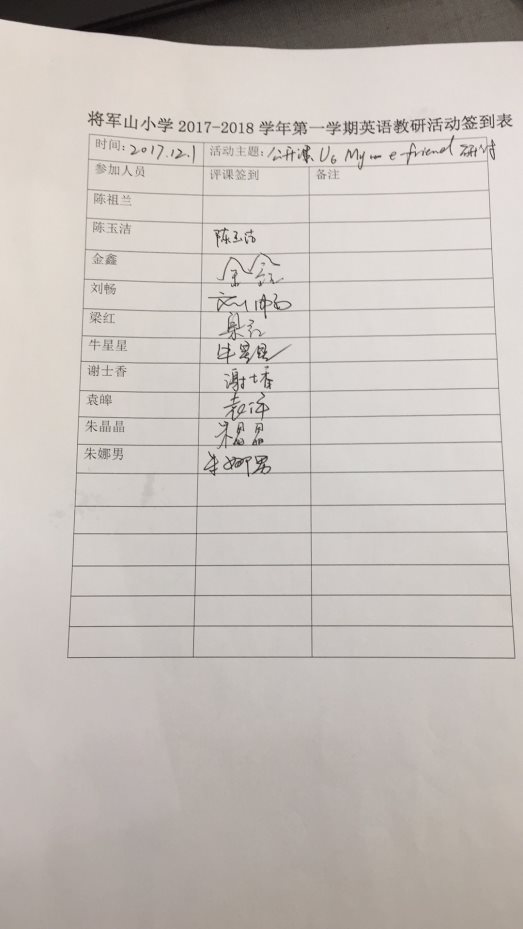 将军山小学 2017-2018 学年第一学期英语教研活动签到表
时间: 2017.12.1 活动主题: 公开课 U6 My e-friend 研讨
参加人员 评课签到 备注
陈祖兰
陈玉洁 陈玉洁
金鑫 金鑫
刘畅 刘畅
梁红 梁红
牛星星 牛星星
谢士香 谢士香
袁皞 袁皞
朱晶晶 朱晶晶
朱娜男 朱娜男